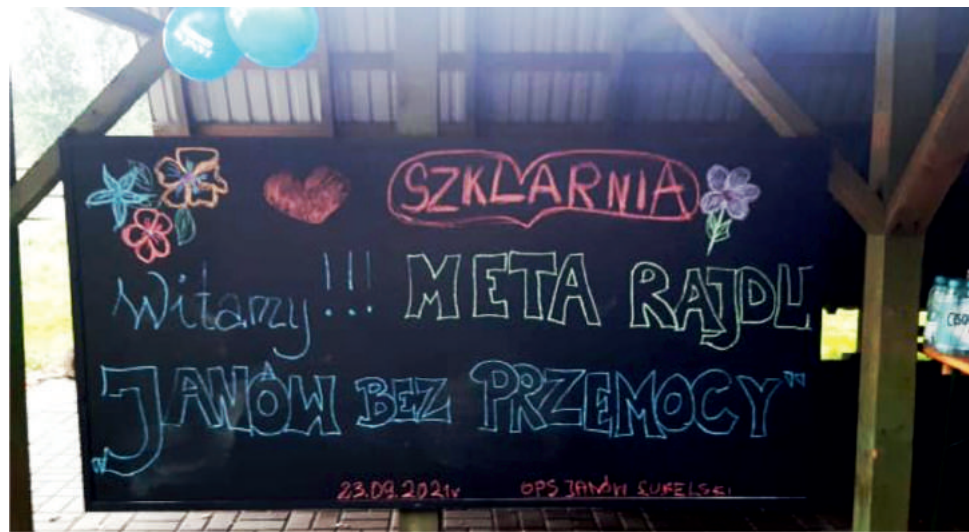 SZKLARNIA
Witamy!!! META RAJDU
„JANÓW BEZ PRZEMOCY”
23.09.2021r OPS JANÓW LUBELSKI